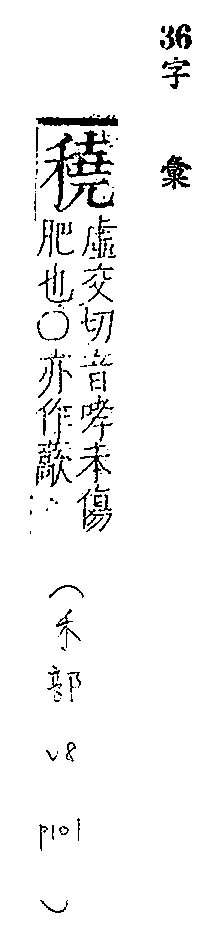 36字彙
穘
虛交切音哮禾傷
肥也○亦作藃
(禾部 v8 p101)